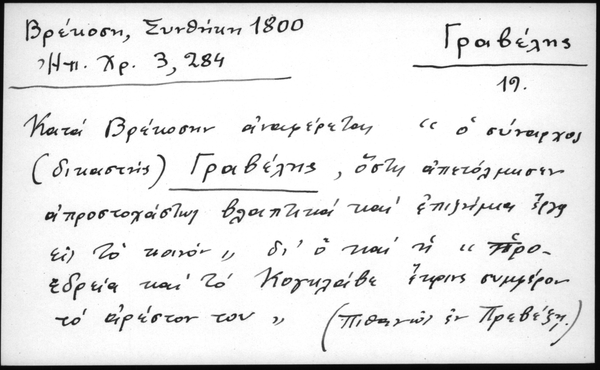 Βρέκοση, Συνθήκη 1800
Ἠπ. Χρ. 3, 284
Γραβέλης
19.
Κατά Βρέκοσην ἀναφέρεται “ ὁ σύναρχος
(δικαστής) Γραβέλης, ὅστις ἀπετόλμησεν
ἀπροστοχάστως βλαπτικά καί ἐπιζήμια ἔργα
εἰς τό κοινόν „ δι' ὅ καί ἡ “ προ-
εδρεία καί τό Κογκλάβε ἔκρινε συμφέρον
τό ἀρέστον του „ (πιθανῶς ἐν Πρεβέζῃ.)